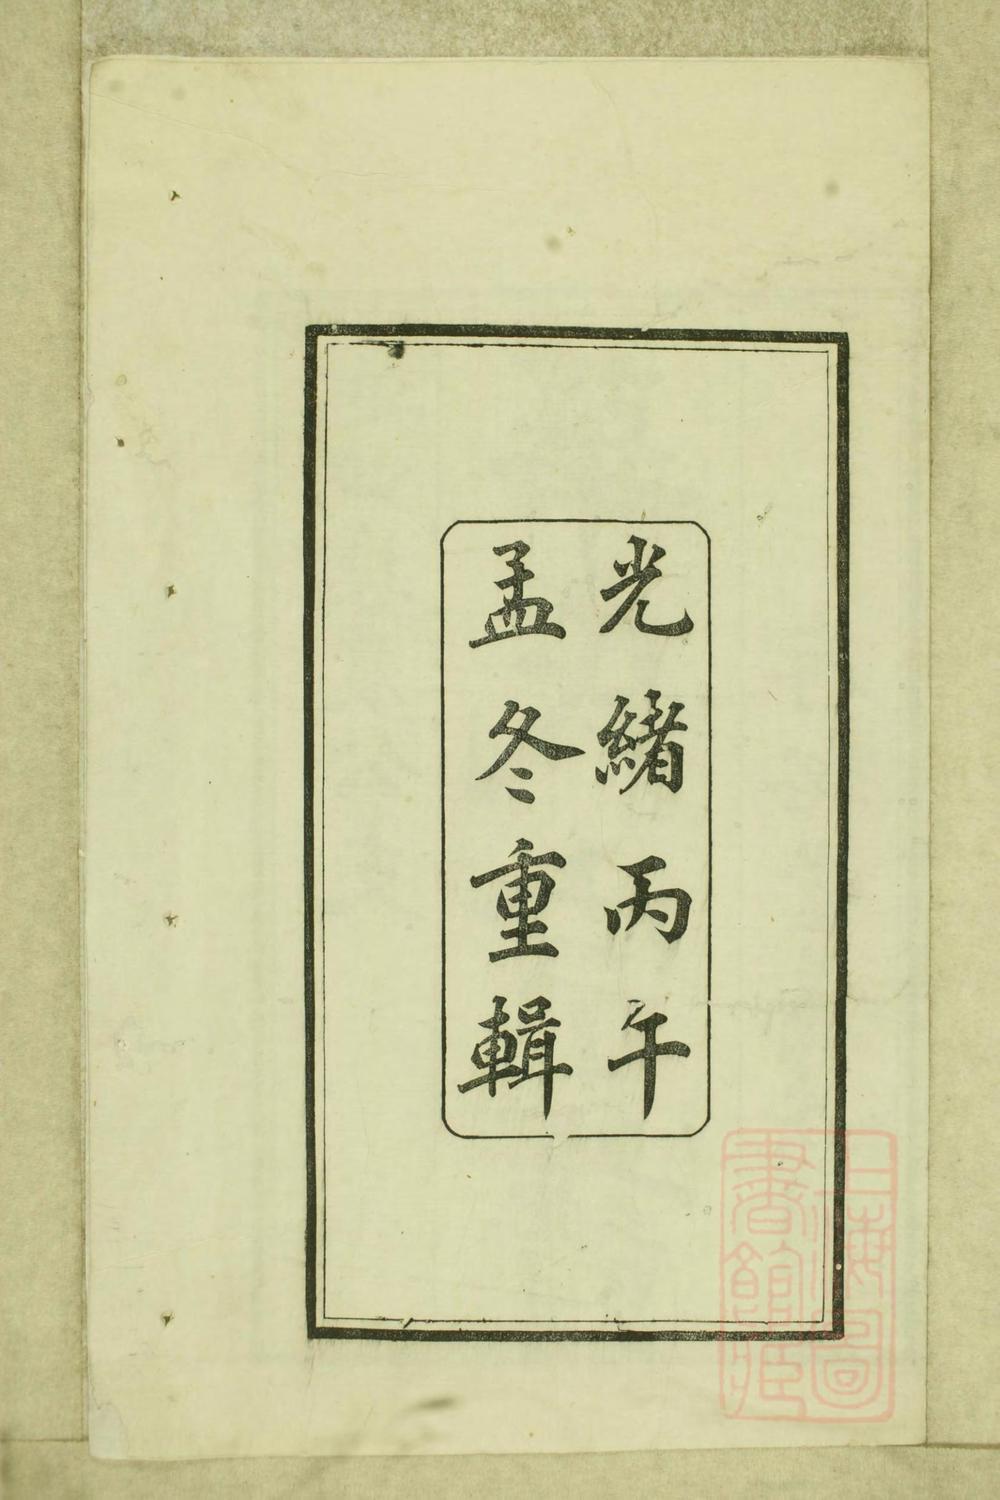 光緒丙午
孟冬重輯
上海圖
書館藏